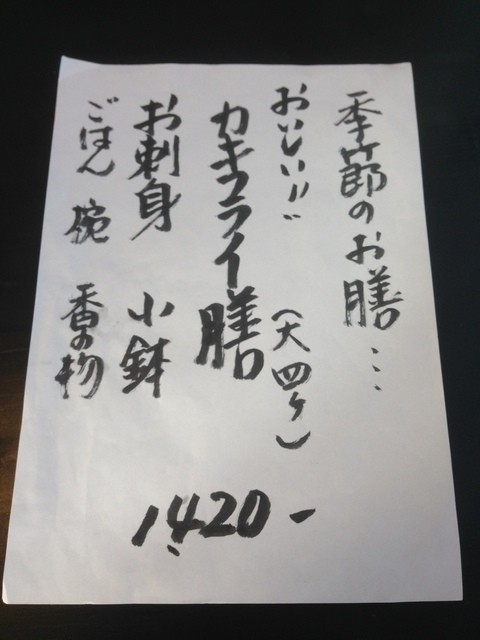 季節のお膳…
おいしい!!
(大四ヶ)
カキフライ膳
お刺身 小鉢
ごはん 椀 香の物
1,420-